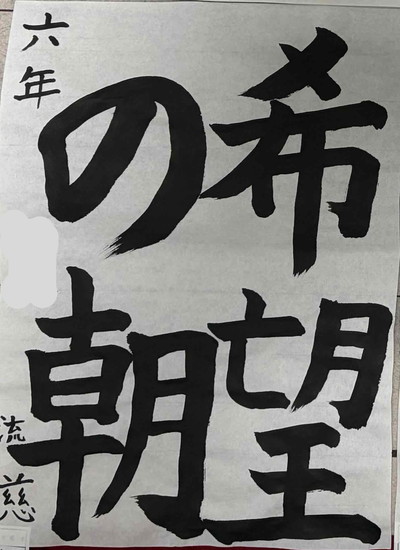 希望
の朝
六年
流慈